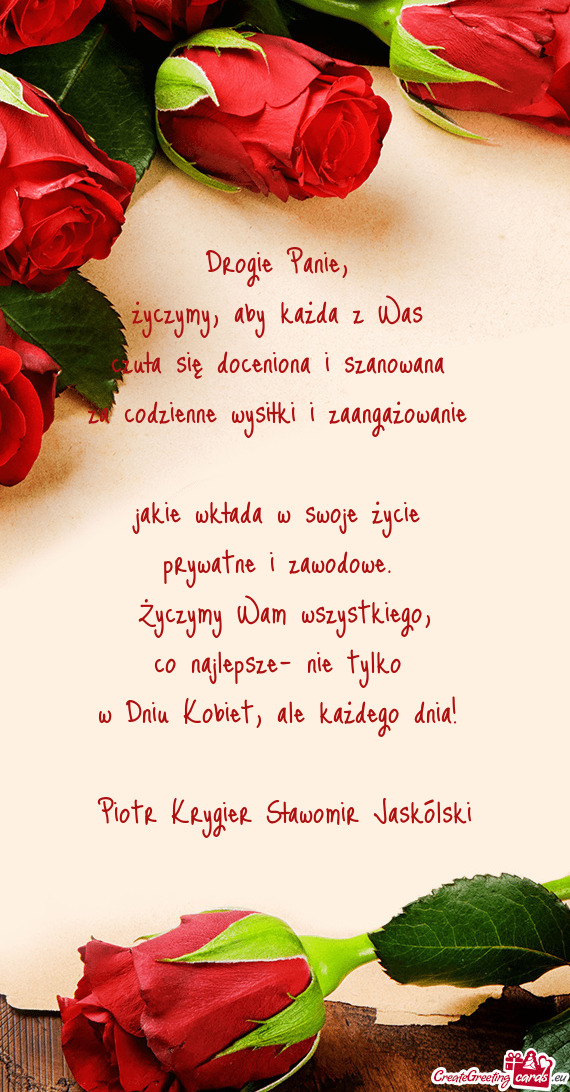 Drogie Panie,
życzymy, aby każda z Was
czuła się doceniona i szanowana
za codzienne wysiłki i zaangażowanie
jakie wkłada w swoje życie
prywatne i zawodowe.
Życzymy Wam wszystkiego,
co najlepsze- nie tylko
w Dniu Kobiet, ale każdego dnia!
Piotr Krygier Sławomir Jaskólski
CreateGreetingcards.eu